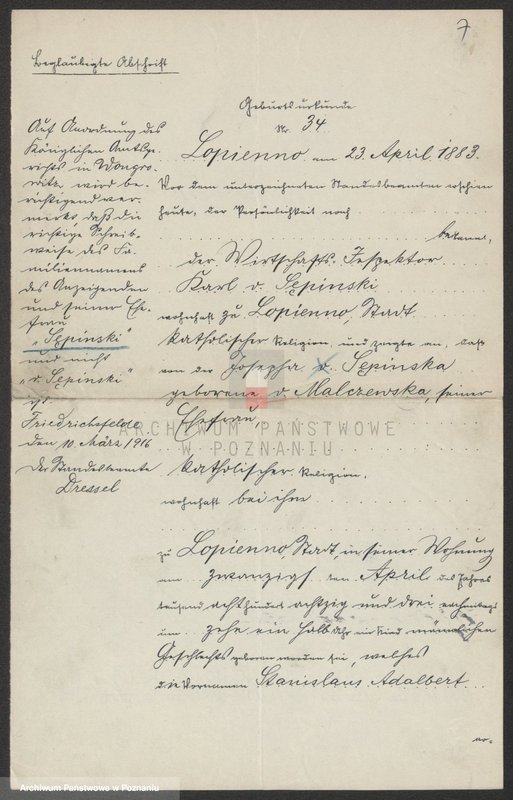 7
Beglaubigte Abschrift
Geburtsurkunde
Nr. 34
Lopienno am 23. April 1883.
Vor dem unterzeichneten Standesbeamten erschien
heute, der Persönlichkeit nach
bekannt,
der Wirtschafts-Inspektor
Karl v. Sępinski
wohnhaft zu Lopienno, Stadt
katholischer Religion, und zeigte an, daß
von der Josepha v. Sępinska
geborene v. Malczewska, seiner
Ehefrau,
katholischer Religion,
wohnhaft bei ihm
zu Lopienno, Stadt, in seiner Wohnung
am zwanzigsten April des Jahres
tausend achthundert achtzig und drei nachmittags
um zehn ein halb Uhr ein Kind männlichen
Geschlechts geboren worden sei, welches
die Vornamen Stanislaus Adalbert
Auf Anordnung des
Königlichen Amtsge-
richts in Wongro-
witz wird be-
richtigend ver-
merkt, daß die
richtige Schreib-
weise des Fa-
miliennamens
des Anzeigenden
und seiner Ehe-
frau
"Sępinski"
und nicht
"v. Sępinski"
ist.
Friedrichsfelde
den 10. März 1916
Der Standesbeamte
Dressel
ARCHIWUM PAŃSTWOWE
W POZNANIU
Archiwum Państwowe w Poznaniu